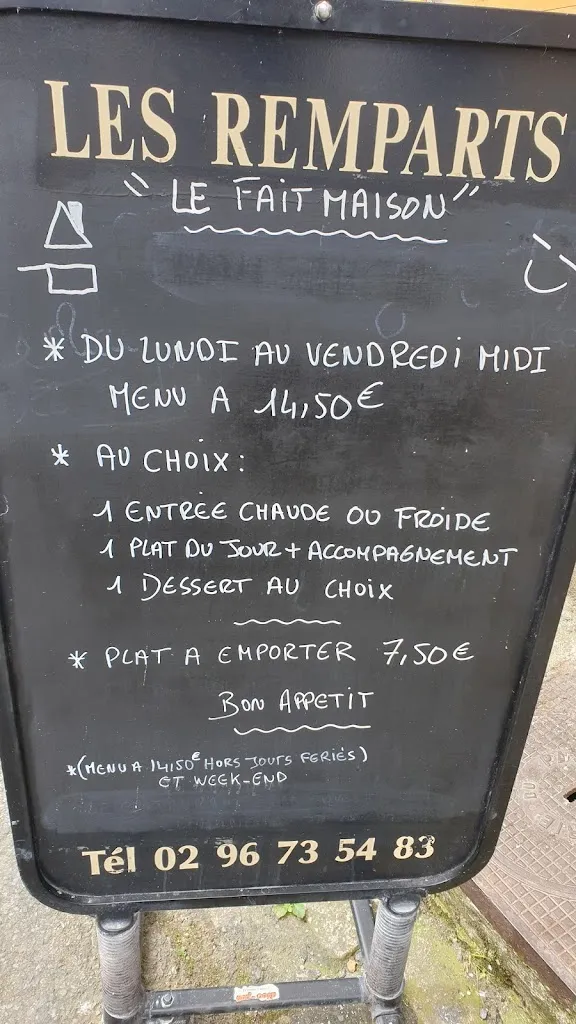 LES REMPARTS
"LE FAIT MAISON"
* DU LUNDI AU VENDREDI MIDI
MENU A 14,50€
* AU CHOIX:
1 ENTRÉE CHAUDE OU FROIDE
1 PLAT DU JOUR + ACCOMPAGNEMENT
1 DESSERT AU CHOIX
* PLAT A EMPORTER 7,50€
BON APPETIT
*(MENU A 14,50€ HORS JOURS FERIÉS)
ET WEEK-END
Tél 02 96 73 54 83